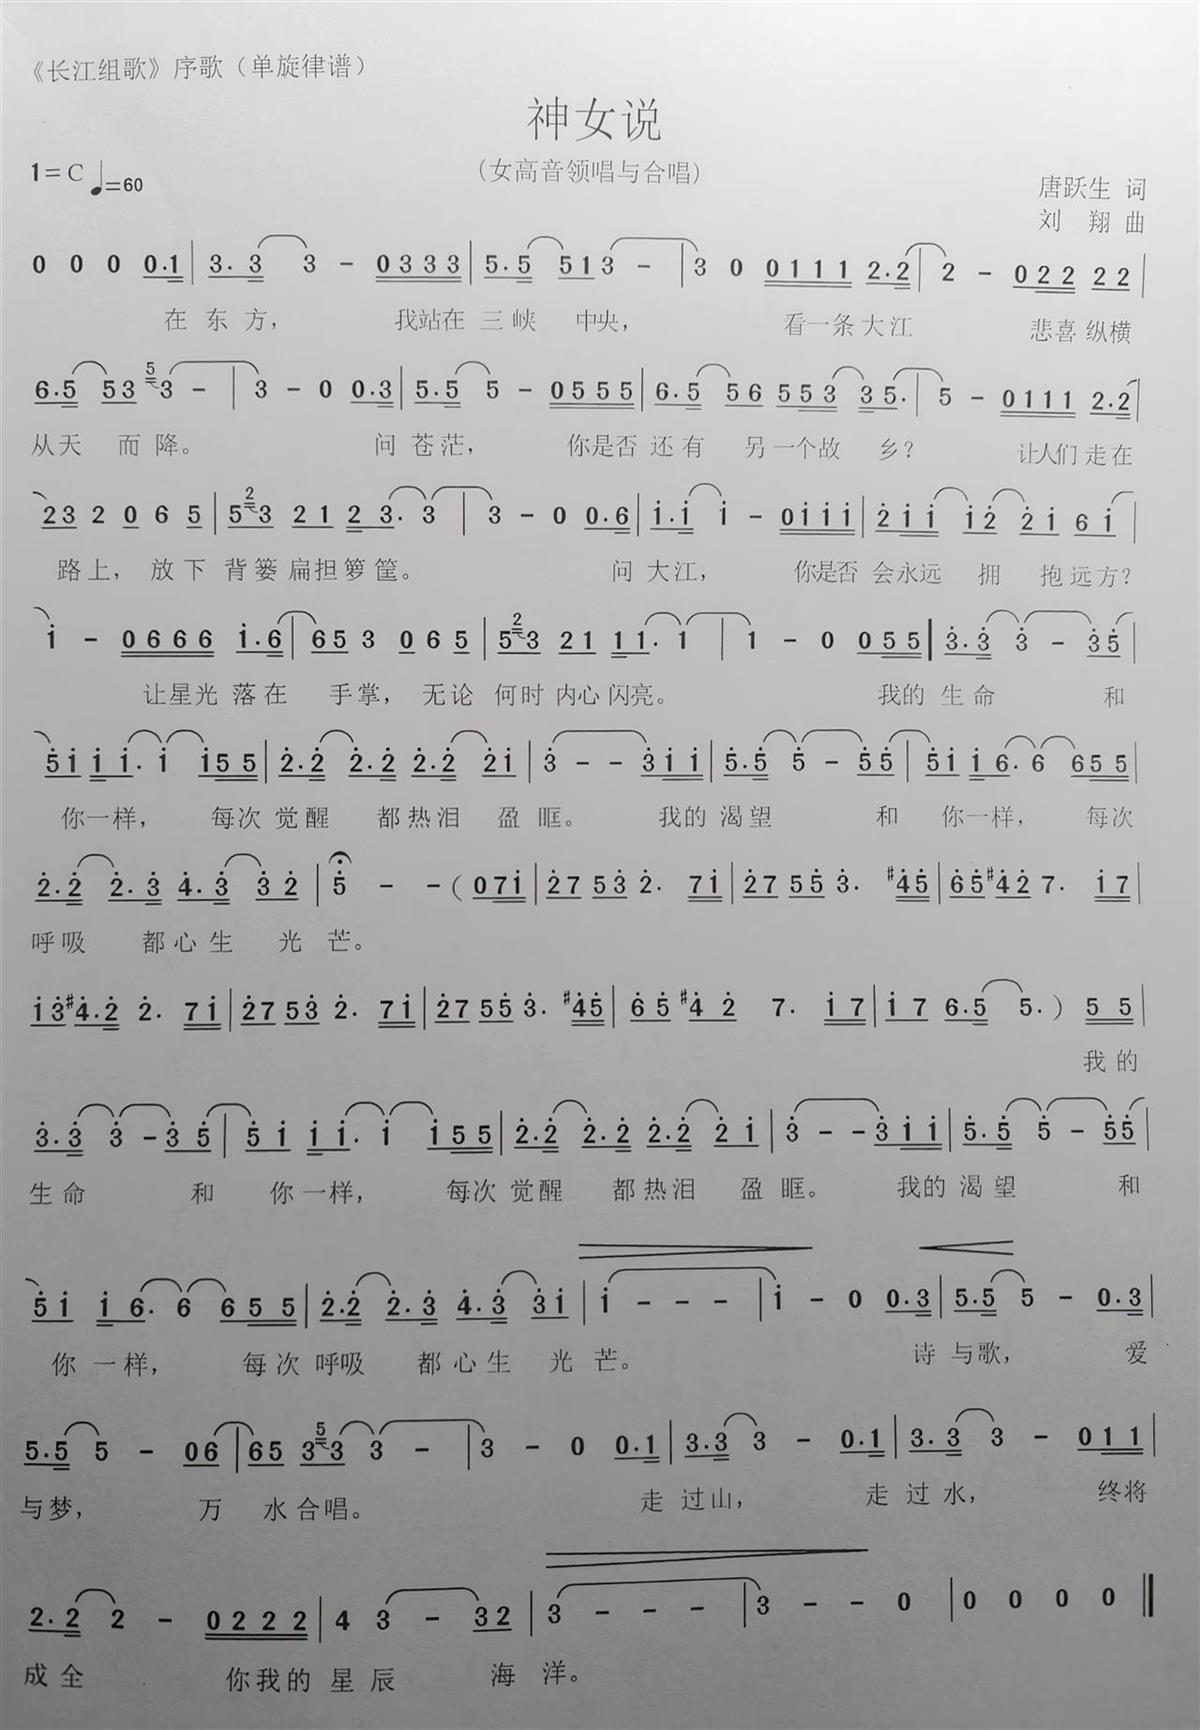 《长江组歌》序歌（单旋律谱）
神女说
（女高音领唱与合唱）
1=C ♩=60
唐跃生 词
刘 翔 曲
0 0 0 0.1 | 3.3 3 - 0333 | 5.5 513 - | 3 0 0111 2.2 | 2 - 022 22 |
在 东 方， 我站在 三 峡 中央， 看一条 大 江 悲喜 纵横
6.5 53 5 3 - | 3 - 0 0.3 | 5.5 5 - 0555 | 6.5 56 553 35. | 5 - 0111 2.2 |
从天 而 降。 问 苍 茫， 你是否 还 有 另 一个 故 乡？ 让人们 走 在
23 2 0 6 5 | 5 2 3 21 2 3. 3 | 3 - 0 0.6 | i.i i - 0iii | 2̇ii i2̇ 2̇i 6 i |
路上， 放 下 背 篓 扁担 箩 筐。 问 大 江， 你是否 会永远 拥 抱远 方？
i - 0666 i.6 | 653 065 | 5 2 3 21 11. 1 | 1 - 0 055 | 3̇.3̇ 3̇ - 3̇5̇ |
让星光 落 在 手 掌， 无论 何时 内心 闪亮。 我的 生 命 和
5̇i i i. i i55 | 2̇.2̇ 2̇.2̇ 2̇.2̇ 2̇i | 3̇ - - 3̇ii | 5̇.5̇ 5̇ - 5̇5̇ | 5̇i i 6. 6 655 |
你一样， 每次 觉 醒 都 热 泪 盈 眶。 我的 渴 望 和 你 一样， 每次
2̇.2̇ 2̇.3̇ 4̇.3̇ 3̇2̇ | 5̇ - - （ 07i | 2̇7 53̇ 2̇. 7i | 2̇7 55 3̇. #4̇5̇ | 6̇5̇ #4̇2̇ 7. i7 |
呼吸 都 心 生 光 芒。
i3̇ #4̇.2̇ 2̇. 7i | 2̇7 53̇ 2̇. 7i | 2̇7 55 3̇. #4̇5̇ | 6̇5̇ #4̇ 2̇ 7. i7 | i7 6.5 5. ） 55 |
我 的
3̇.3̇ 3̇ - 3̇5̇ | 5̇i i i. i i55 | 2̇.2̇ 2̇.2̇ 2̇.2̇ 2̇i | 3̇ - - 3̇ii | 5̇.5̇ 5̇ - 5̇5̇ |
生 命 和 你 一 样， 每次 觉 醒 都 热 泪 盈 眶。 我的 渴 望 和
5̇i i 6. 6 655 | 2̇.2̇ 2̇.3̇ 4̇.3̇ 3̇i | i - - - | i - 0 0.3 | 5.5 5 - 0.3 |
你 一 样， 每 次 呼吸 都 心 生 光 芒。 诗 与歌， 爱
5.5 5 - 06 | 65 3 5 3 3 - | 3 - 0 0.1 | 3.3 3 - 0.1 | 3.3 3 - 011 |
与 梦， 万 水 合 唱。 走 过 山， 走 过 水， 终将
2.2 2 - 0222 | 4 3 - 32 | 3 - - - | 3 - - 0 | 0 0 0 0 ‖
成 全 你我的 星 辰 海 洋。